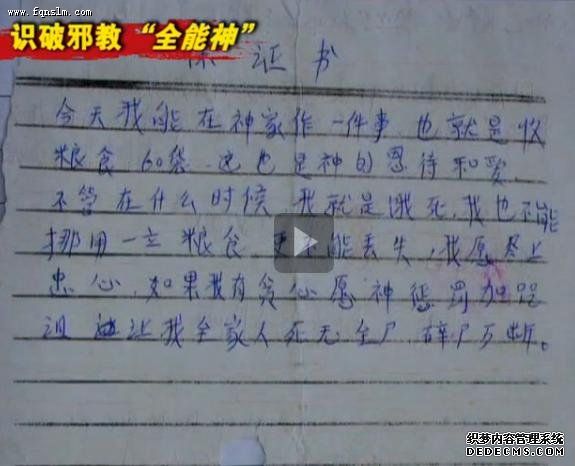 www.fqnslm.com
识破邪教“全能神”
证书
今天我能在神家作一件事.也就是收
粮食60袋.这也是神的恩待和爱.
不管在什么时候 我就是饿死,我也不能
挪用一立粮食.更不能丢失,我愿尽上
忠心.如果我有贪心愿神惩罚加咒
诅 让我全家人死无全尸,碎尸万断。
织梦内容管理系统
DEDECMS.COM